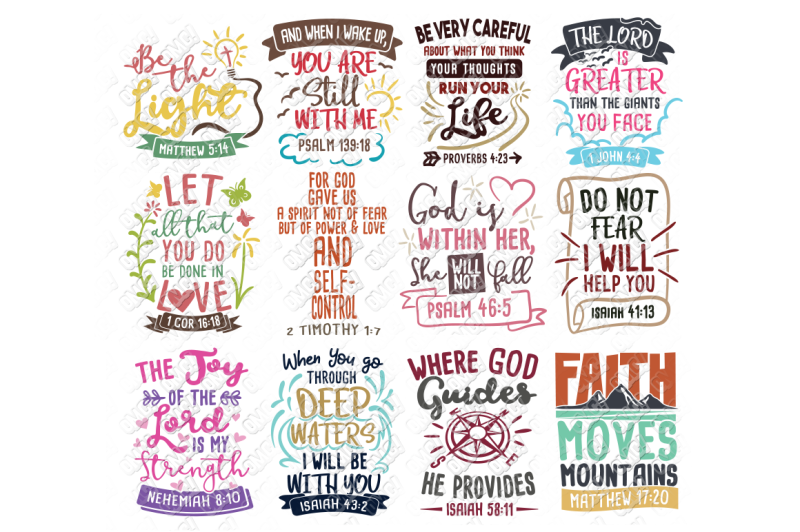 Be
the
Light
MATTHEW 5:14
AND WHEN I WAKE UP,
YOU ARE
Still
WITH ME
PSALM 139:18
BE VERY CAREFUL
ABOUT WHAT YOU THINK
YOUR THOUGHTS
RUN YOUR
Life
PROVERBS 4:23
THE LORD
IS
GREATER
THAN THE GIANTS
YOU FACE
1 JOHN 4:4
LET
all that
YOU DO
BE DONE IN
LOVE
1 COR 16:18
FOR GOD
GAVE US
A SPIRIT NOT OF FEAR
BUT OF POWER & LOVE
AND
SELF-
CONTROL
2 TIMOTHY 1:7
God is
WITHIN HER,
She WILL NOT fall
PSALM 46:5
DO NOT
FEAR
I WILL
HELP YOU
ISAIAH 41:13
THE Joy
OF THE
Lord
IS MY
Strength
NEHEMIAH 8:10
When You go
THROUGH
DEEP
WATERS
I WILL BE
WITH YOU
ISAIAH 43:2
WHERE GOD
Guides
S
E
HE PROVIDES
ISAIAH 58:11
FAITH
MOVES
MOUNTAINS
MATTHEW 17:20